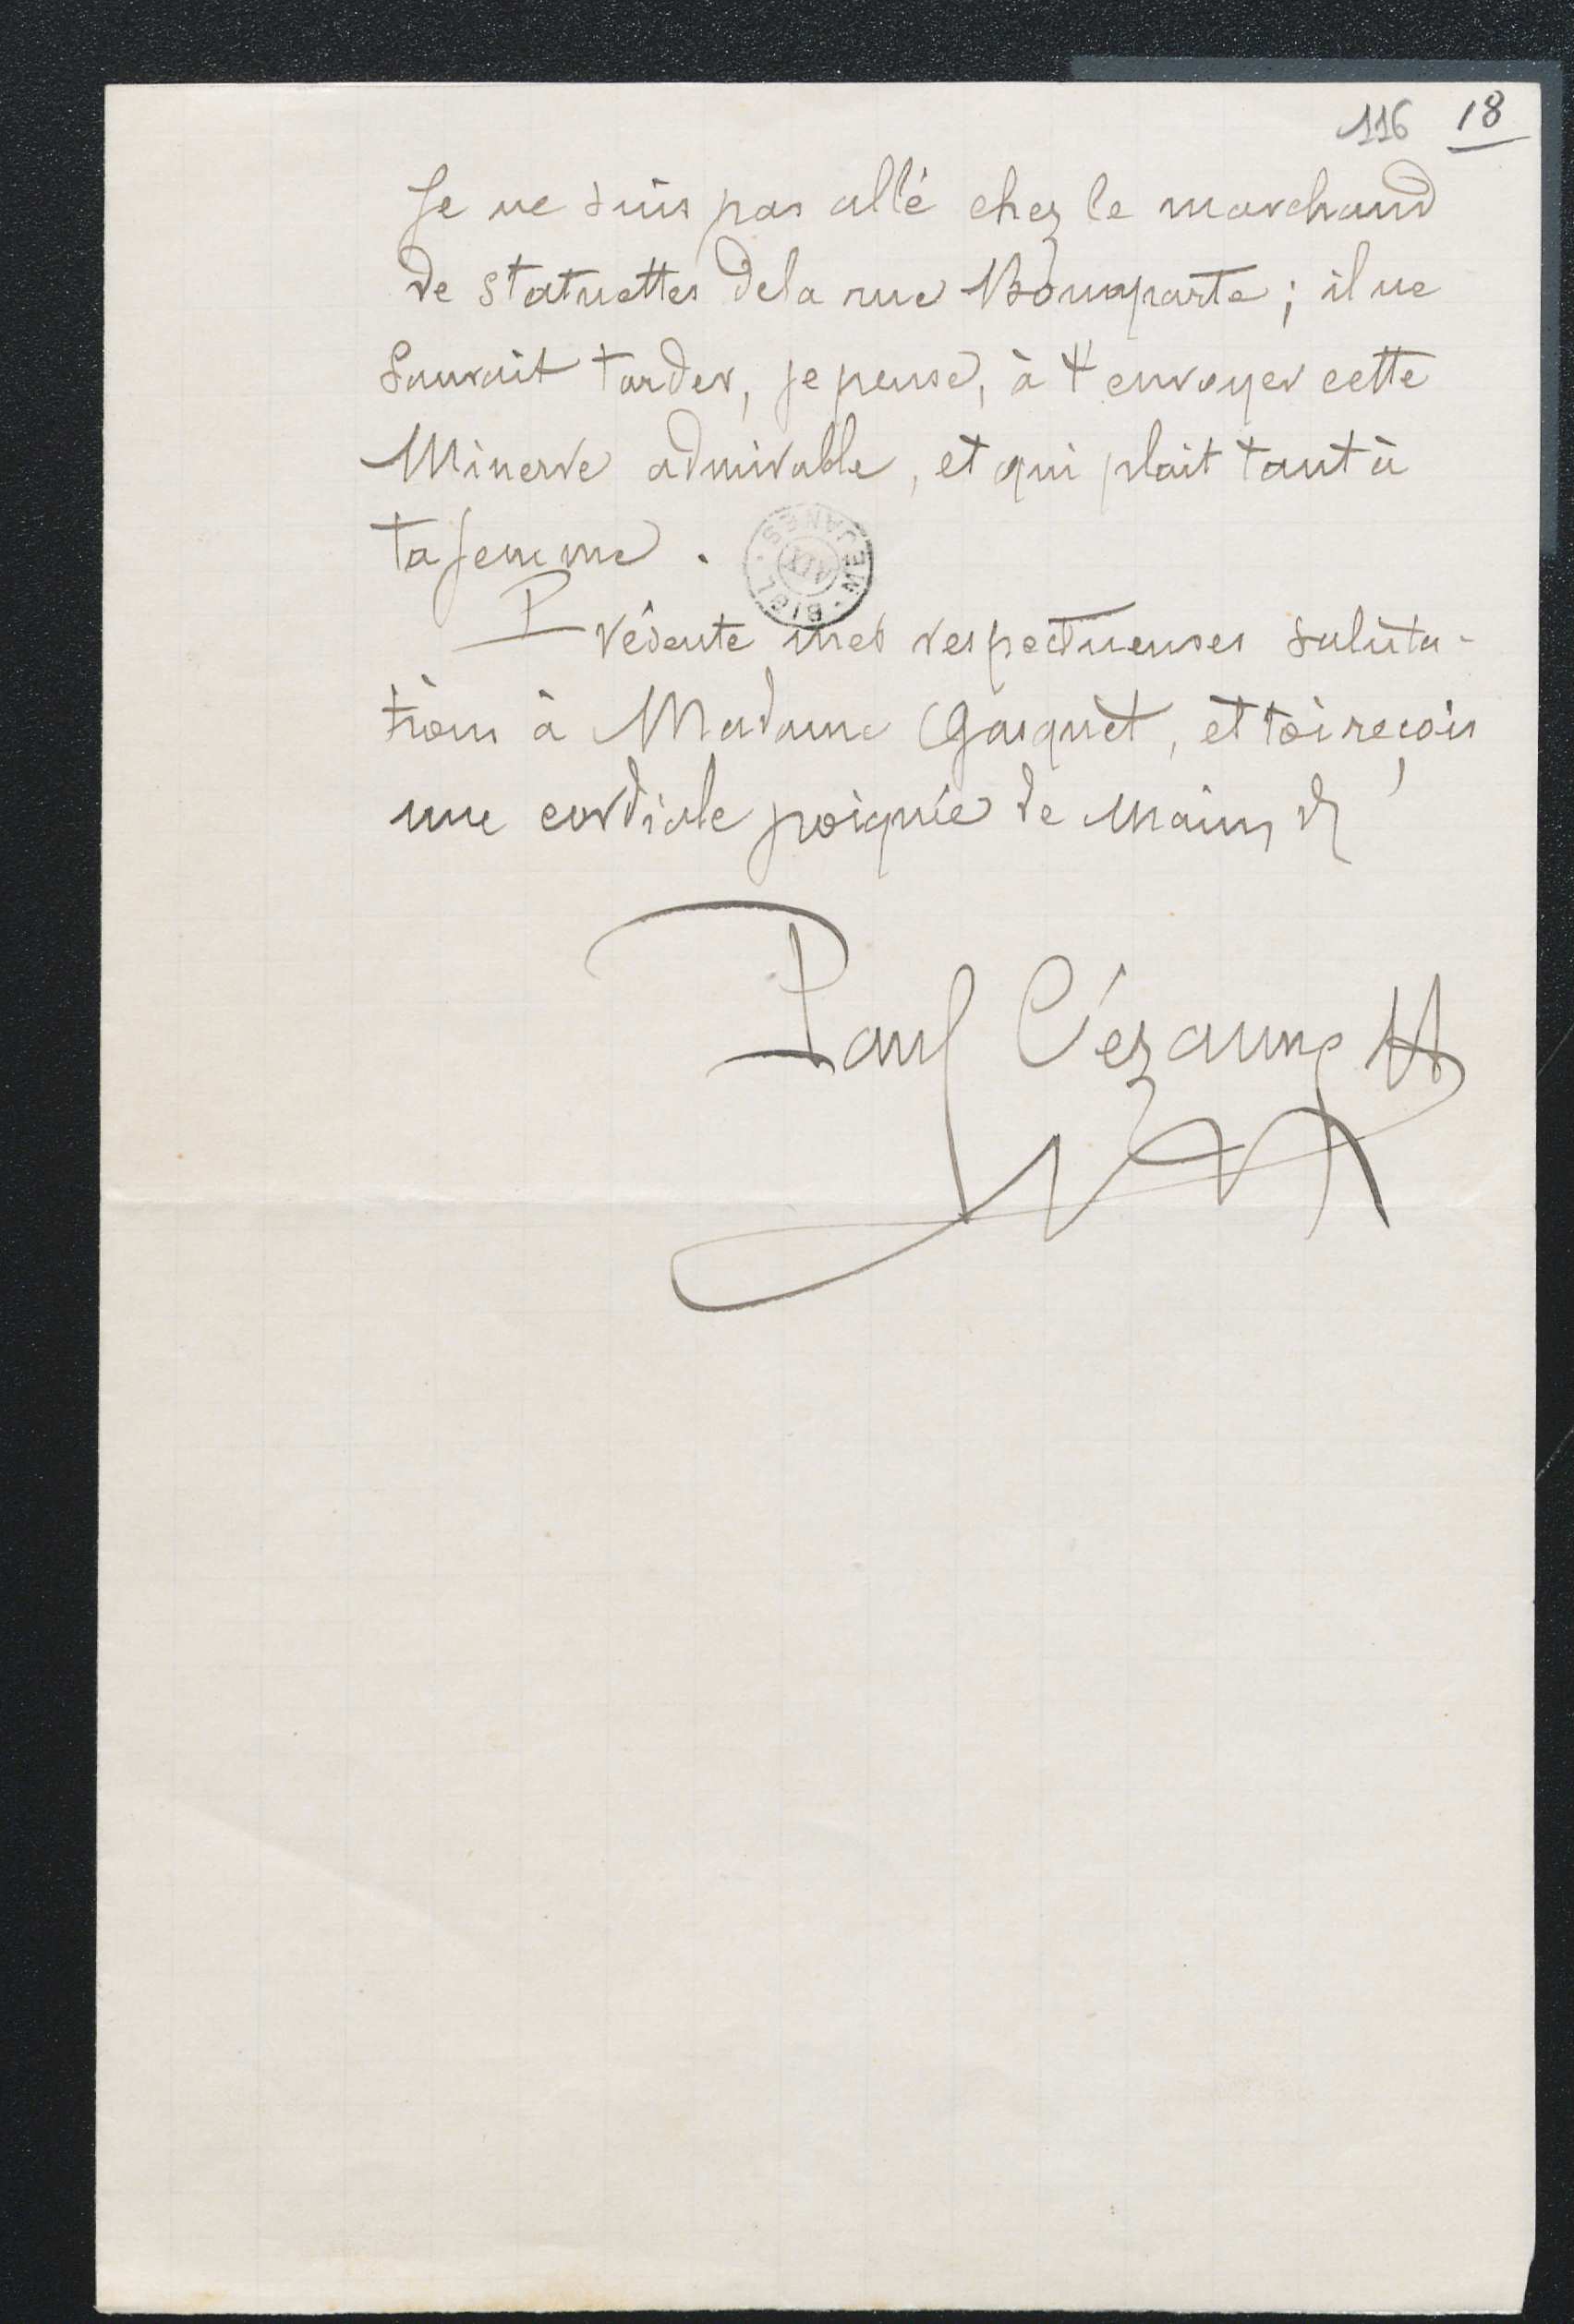 116 18
Je ne suis pas allé chez le marchand
de statuettes de la rue Bonaparte ; il ne
saurait tarder, je pense, à t'envoyer cette
Minerve admirable, et qui plait tant à
ta femme.
BIBL. MEJANES AIX
Présente mes respectueuses saluta-
tions à Madame Gasquet, et toi reçois
une cordiale poignée de main, d
Paul Cézanne